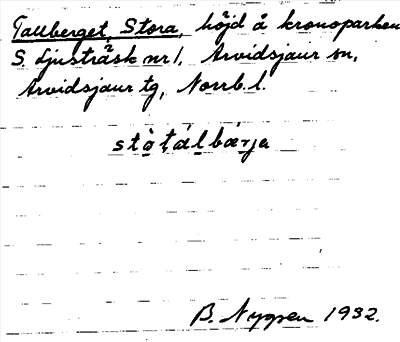 Tallberget, Stora, höjd å kronoparken
S. Ljusträsk nr 1, Arvidsjaur sn,
Arvidsjaur tg, Norrb. l.
stòtálbærja
B. Nygren 1932.